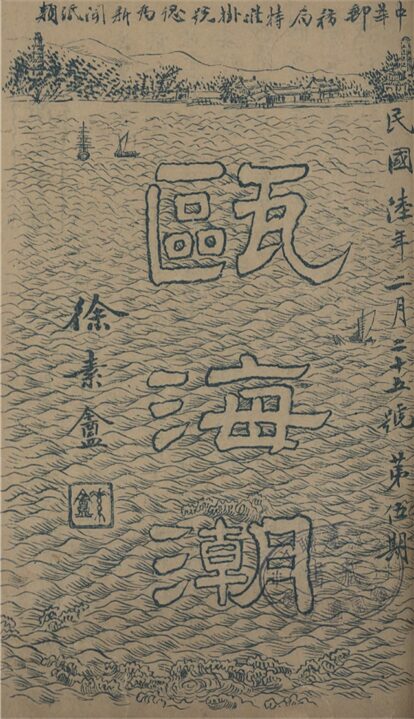 中華郵務局特准掛號認為新聞紙類
民國陸年二月二十五號 第伍期
甌海潮
徐素盦
素盦